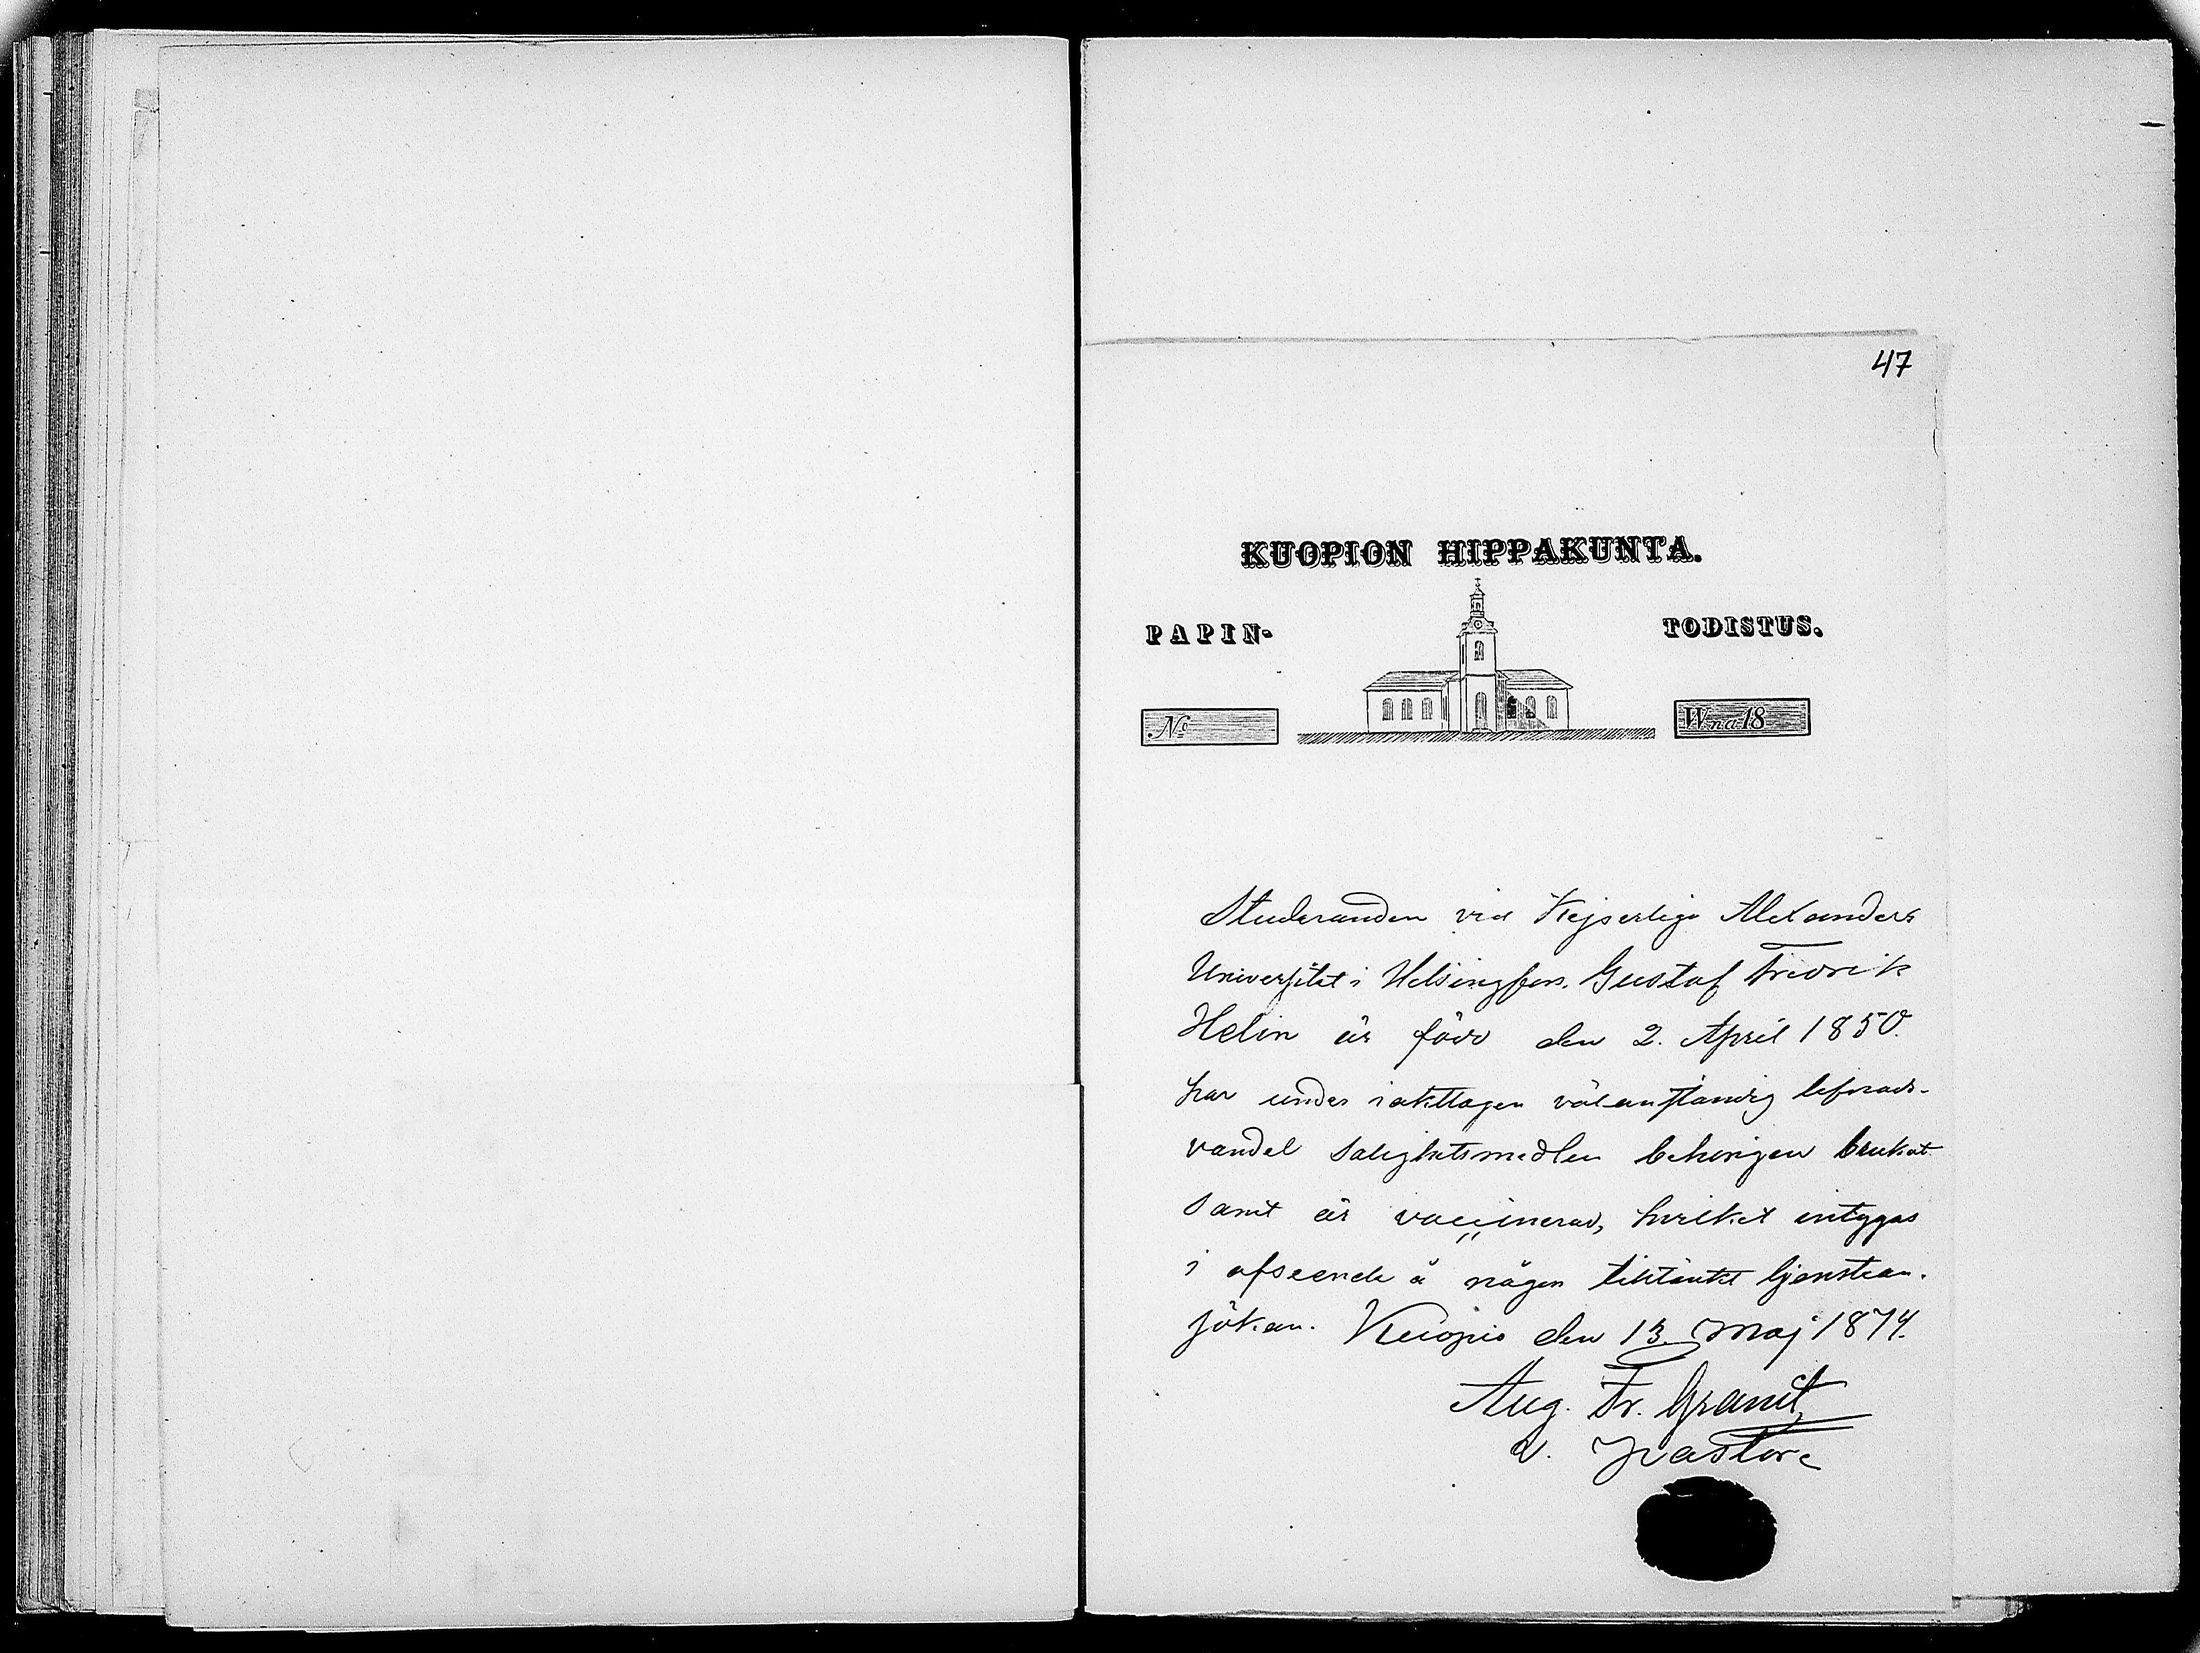 47
KUOPION HIPPAKUNTA.
PAPIN- TODISTUS.
No Wna 18
Studeranden vid Kejserliga Alexanders
Universitet i Helsingfors, Gustaf Fredrik
Helin är född den 2. April 1850.
har under iakttagen välanständig lefnads-
vandel salighetsmedlen behörigen brukat
samt är vaccinerad, hvilket intygas
i afseende å någon tilltänkt tjenstean-
sökan. Kuopio den 13. Maj 1874.
Aug. Fr. Granit,
v. Pastor.